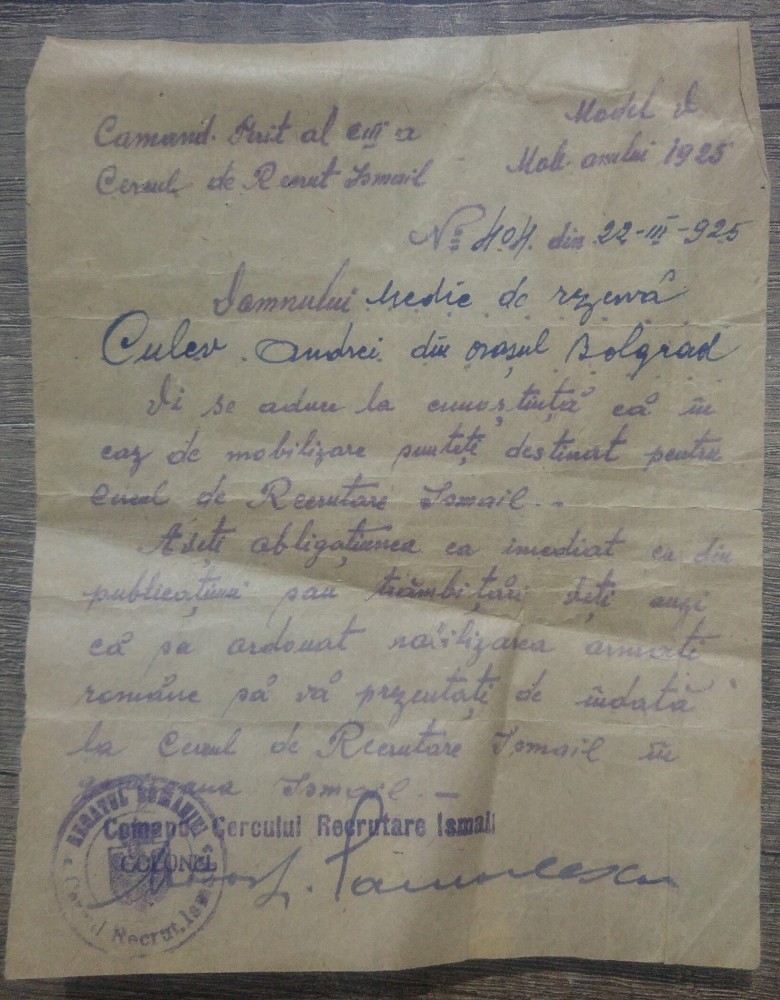 Comand. Terit al CIII a
Cercul de Recrut Ismail
Model I
Mob. anului 1925
Nº 404. din 22-III-925
Domnului Medic de rezervă
Culev. Andrei din orașul Bolgrad
Vi se aduce la cunoștință că în
caz de mobilizare sunteți destinat pentru
Cercul de Recrutare Ismail. -
Aveți obligațiunea ca imediat ce din
publicațiuni sau trâmbițări veți auzi
că sa ordonat mobilizarea armatei
române să vă prezentați de îndată
la Cercul de Recrutare Ismail în
Ismail. -
Comand. Cercului Recrutare Ismail
COLONEL
REGATUL ROMANIEI
Cercul Recrut. Ismail